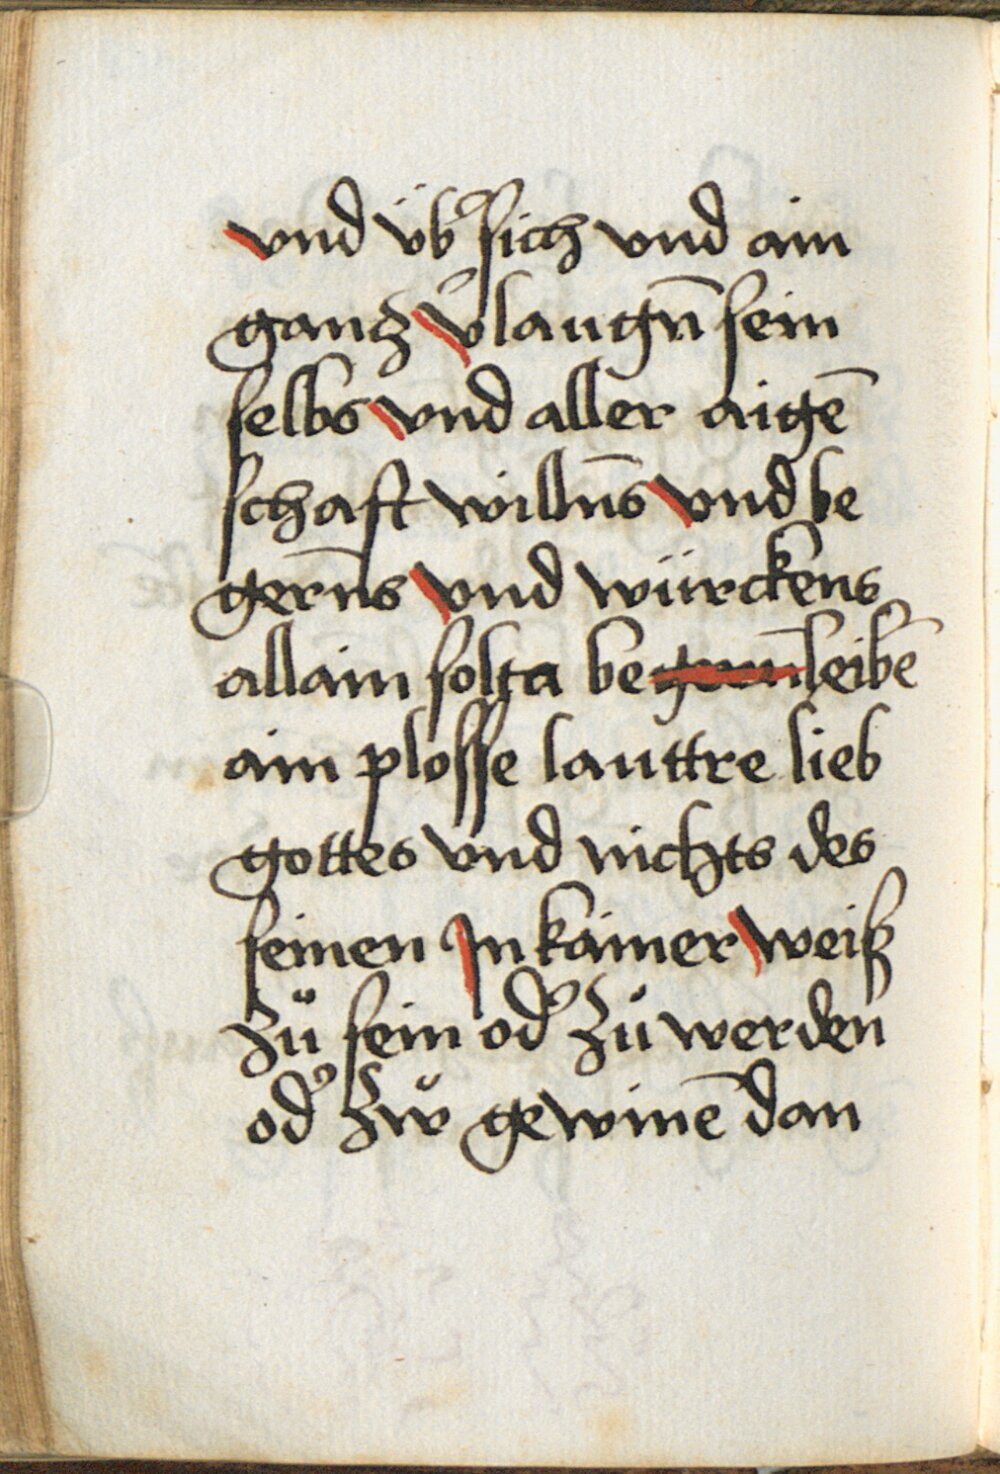 vnd vbͤ sich vnd ain
gantz v̓laugn̄ sein
selbs vnd aller aigē
schaft willn̄s vnd be
gern̄s vnd würckens
allain solt a beleibē
ain plosse lauttre lieb
gottes vnd nichts des
seinen In kainer weiß
zů sein od̓ zů werden
od̓ zẘ gewinē dan